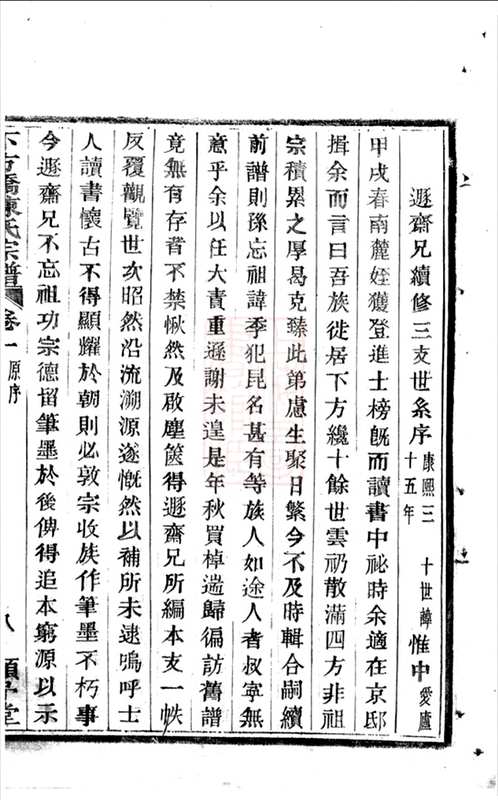 遯齋兄續修三支世系序 康熙三十五年 十世諱惟中愛廬
甲戌春南麓姪獲登進士榜既而讀書中祕時余適在京邸
揖余而言曰吾族徙居下方纔十餘世雲礽散滿四方非祖
宗積累之厚曷克臻此第慮生聚日繁今不及時輯合嗣續
前譜則孫忘祖諱季犯昆名甚有等族人如途人者叔寧無
意乎余以任大責重遜謝未遑是年秋買棹遄歸徧訪舊譜
竟無有存者不禁愀然及啟塵篋得遯齋兄所編本支一帙
反覆觀覽世次昭然沿流溯源遂慨然以補所未逮嗚呼士
人讀書懷古不得顯耀於朝則必敦宗收族作筆墨不朽事
今遯齋兄不忘祖功宗德留筆墨於後俾得追本窮源以示
方橋陳氏宗譜 卷一 原序 八